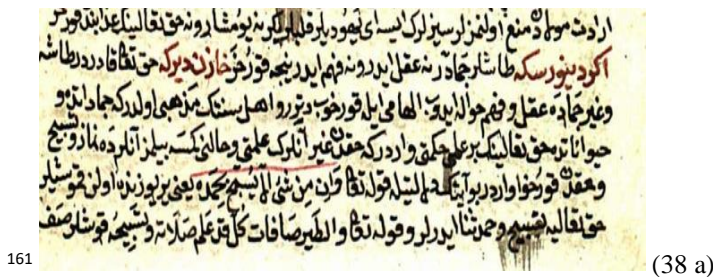 ارادت مولادن منع اولنمزلر سيز لرك ايسه اى يهوديلر قلبلرڭز يومشارونه حق تعالينك عذابندن قورقر
اكر دينورسكه طاشلر جمادر نه عقل ايدر ونه فهم ايدر نيجه قورقر خازن ديركه حق تعالى قادردر طاشه
وغير جماده عقل و فهم حواله ايدوب الهامى ايله قورقوب ديترر و اهل سنتك مذهبى اولدركه جماداتده و
حيواناتده حق تعالينك بر علمى حكمتى واردركه حقدن غيرى آنلرك علمتى و حالنى كمسه بيلمز آنلر ده نماز و تسبيح
وحقدن قورخو واردر بو آيتك دليلتيله قوله تعالى وان من شئ الا يسبح بحمده يعنى بر يوزنده اولن قوشلر
حق تعاليه تسبيح و حمد ثنا ايدرلر و قوله تعالى والطير صافات كل قد علم صلاته وتسبيحه قوشلر صف
161 (38 a)